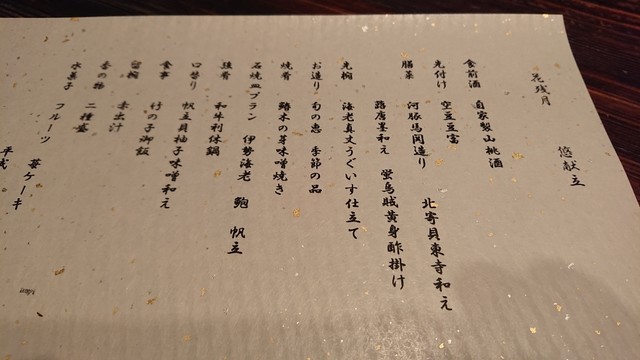 花残月
悠献立
食前酒 自家製山桃酒
先付け 空豆豆富
河豚馬関造り 北寄貝東寺和え
膳菜
蕗唐墨和え 螢烏賊黄身酢掛け
先椀 海老真丈うぐいす仕立て
お造り 旬の恵 季節の品
焼肴 鰆木の芽味噌焼き
石焼皿プラン 伊勢海老 鮑 帆立
強肴 和牛利休鍋
口替り 帆立貝柚子味噌和え
食事 竹の子御飯
留椀 赤出汁
香の物 二種盛
水菓子 フルーツ 苺ケーキ
平成